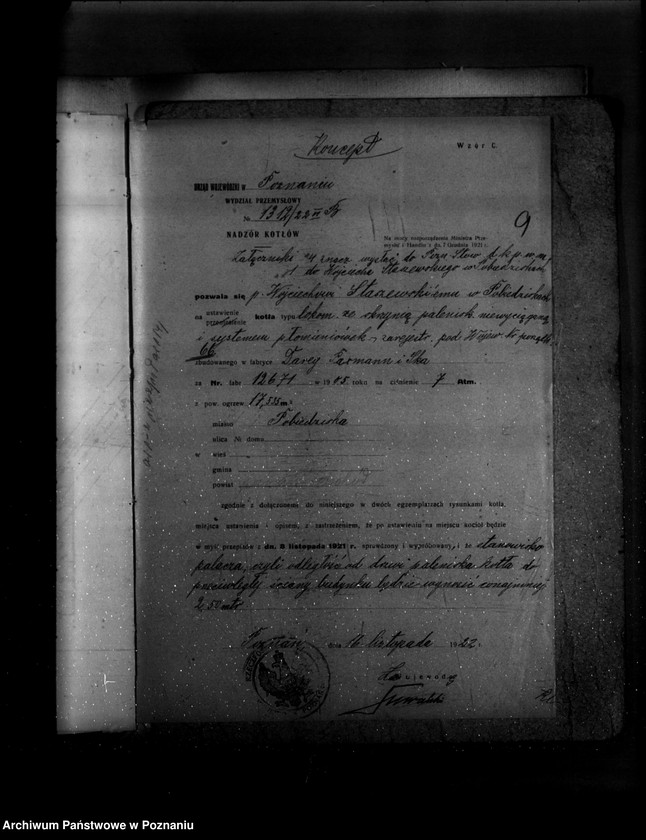 Koncept
Wzór C.
URZĄD WOJEWÓDZKI w Poznaniu
WYDZIAŁ PRZEMYSŁOWY
№ 1312/22 II
NADZÓR KOTŁÓW
9
Na mocy rozporządzenia Ministra Prze-
mysłu i Handlu z dn. 7 Grudnia 1921 r.
Załączniki wysłać do Pozn. Stow.
do Wojciecha Staszewskiego w Pobiedziskach
pozwala się p. Wojciechowi Staszewskiemu w Pobiedziskach
na ustawienie
przerobienie kotła typu lokom. ze skrzynią palenisk. niewyciąganą
i systemem płomieniówek zarejestr. pod Wojew. Nr porządk.
66
zbudowanego w fabryce
za Nr. fabr. 12671 w 1905 roku na ciśnienie 7 Atm.
z pow. ogrzew. 17,535 m²
miasto Pobiedziska
ulica № domu
w wieś
gmina
powiat
zgodnie z dołączonemi do niniejszego w dwóch egzemplarzach rysunkami kotła,
miejsca ustawienia i opisem, z zastrzeżeniem, że po ustawieniu na miejscu kocioł będzie
w myśl przepisów z dn. 8 listopada 1921 r. sprawdzony i wypróbowany, i że stanowisko
palacza, czyli odległość od drzwi paleniska kotła do
przeciwległej ściany budynku będzie wynosić conajmniej
2,50 mtr.
Poznań, dnia 16 listopada 1922
Wojewoda
Archiwum Państwowe w Poznaniu